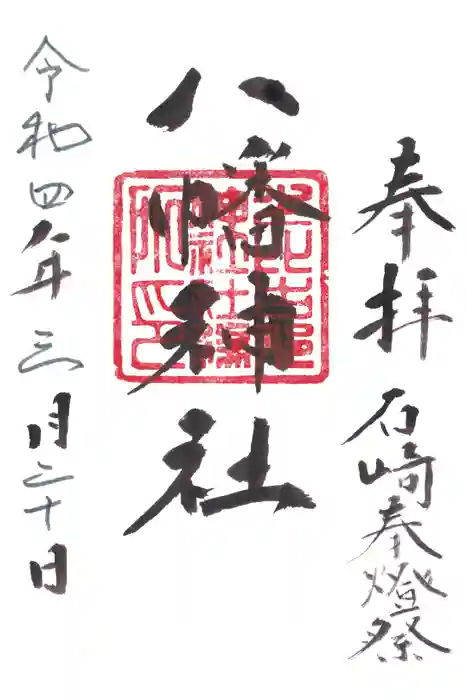 奉拝
石崎奉燈祭
八幡神社
令和四年三月二十日